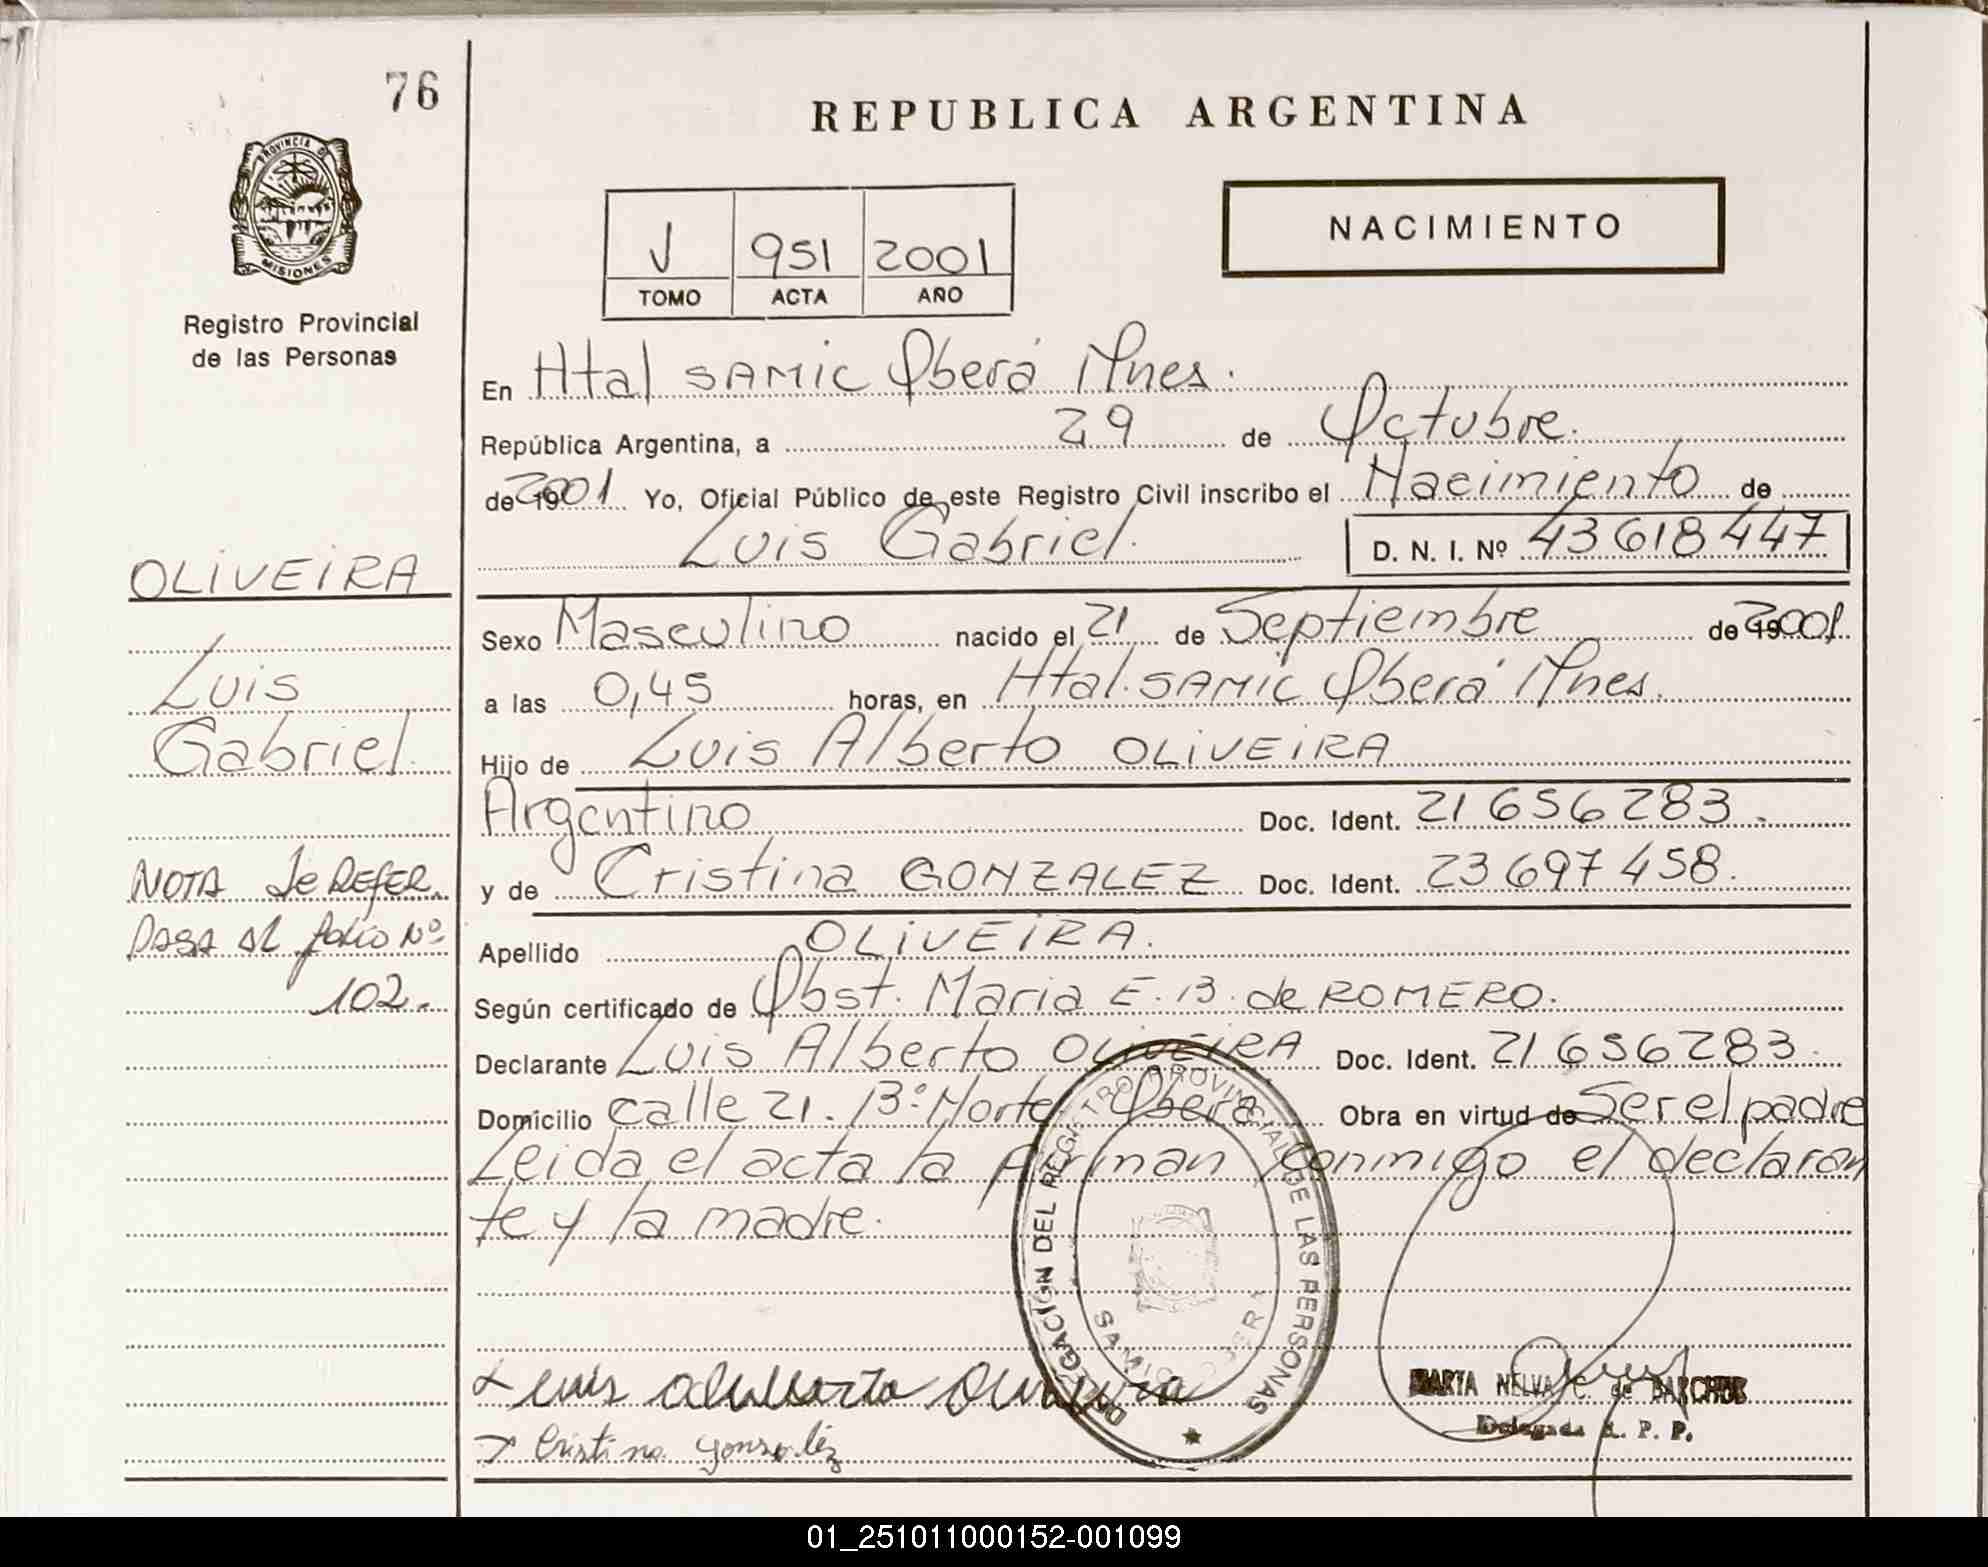 76
REPUBLICA ARGENTINA
PROVINCIA DE
MISIONES
Registro Provincial
de las Personas
NACIMIENTO
J 951 2001
TOMO ACTA AÑO
En Htal SAMIC Oberá Mnes.
República Argentina, a 29 de Octubre.
de 2001 Yo, Oficial Público de este Registro Civil inscribo el Nacimiento de
Luis Gabriel. D. N. I. Nº 43 618 447
OLIVEIRA
Luis
Gabriel.
NOTA de REFER.
PASA AL folio Nº
102.-
Sexo Masculino nacido el 21 de Septiembre de 2001.
a las 0,45 horas, en Htal. SAMIC Oberá Mnes.
Hijo de Luis Alberto OLIVEIRA
Argentino Doc. Ident. 21 656 283.
y de Cristina GONZALEZ Doc. Ident. 23 697 458.
Apellido OLIVEIRA.
Según certificado de Obst. Maria E. B. de ROMERO.
Declarante Luis Alberto OLIVEIRA Doc. Ident. 21 656 283.
Domicilio calle 21. Bº Norte Oberá Obra en virtud de Ser el padre
Leida el acta la firman conmigo el declaran
te y la madre.
DELEGACIÓN DEL REGISTRO PROVINCIAL DE LAS PERSONAS
SAMIC OBERA
Luis Alberto Oliveira
Cristina Gonzalez
MARTA NELVA C. de
Delegada R. P. P.
01_251011000152-001099